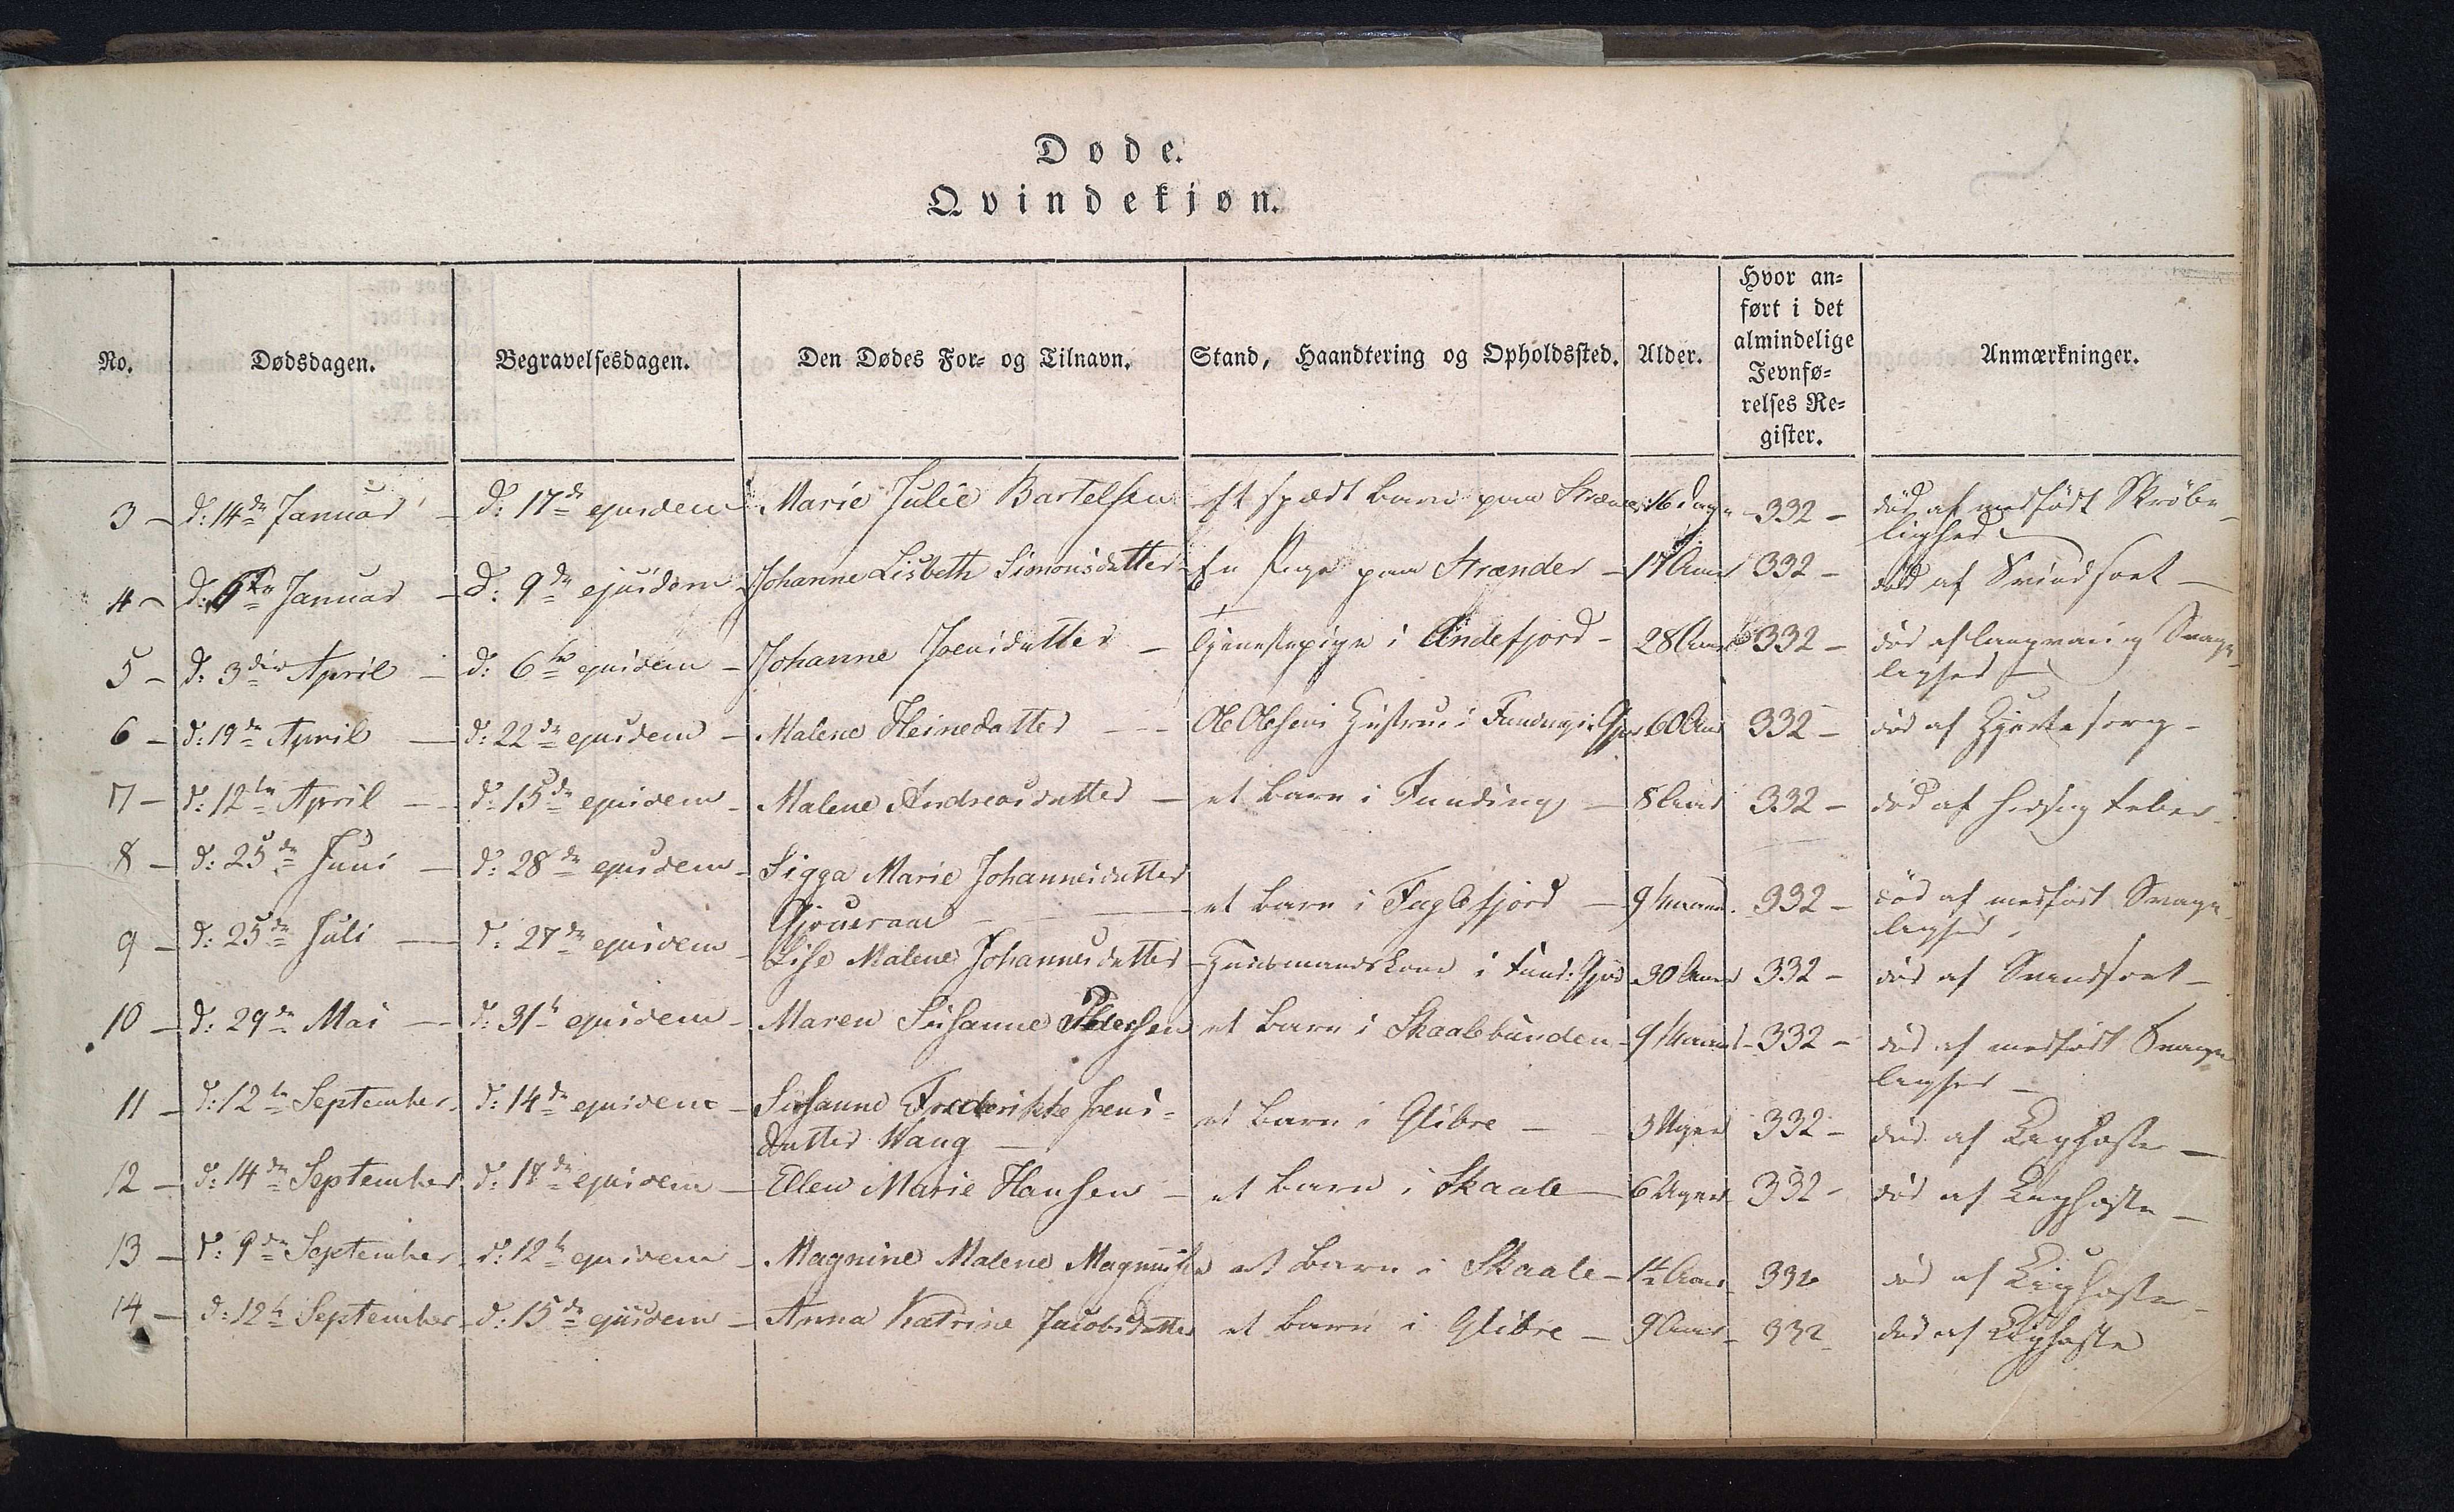 Døde.
Qvindekjøn.
No. Dødsdagen. Begravelsesdagen. Den Dødes For- og Tilnavn. Stand, Haandtering og Opholdssted. Alder. Hvor an-
ført i det
almindelige
Jevnfø-
relses Re-
gister. Anmærkninger.
3 - d: 14de Januar - d: 17de ejusdem Marie Julie Bartelsen et spædt Barn paa Strænder 16 Dage 332 - død af medfödt Skröbe-
lighed
4 - d: 6te Januar - d: 9de ejusdem Johanne Lisbeth Simonsdatter En Pige paa Strænder - 17 Aar 332 - död af Svindsoet -
5 - d: 3die April - d: 6te ejusdem - Johanne Joensdatter - Tjenestepige i Andefjord - 28 Aar 332 - död af langvarig Svage-
lighed -
6 - d: 19de April - d: 22de ejusdem - Malene Heinedatter - Ole Olsens Hustru i Fundings Gjov 60 Aar 332 - död af Hjertesorg -
7 - d: 12te April - d: 15de ejusdem - Malene Andreasdatter - et Barn i Funding - 8 Aar 332 - död af hidsig Feber -
8 - d: 25de Juni - d: 28de ejusdem - Sigga Marie Johannesdatter
Gjoueraae - et Barn i Fuglefjord - 9 Maaned. 332 - död af medfödt Svage-
lighed.
9 - d: 25de Juli - d: 27de ejusdem - Lise Malene Johannesdatter - Huusmandskone i Fund: Gjov 30 Aar 332 - död af Svindsoet -
10 - d: 29de Mai - d: 31te ejusdem - Maren Susanne Pedersen et Barn i Skaalebunden - 9 Maaned - 332 - död af medfödt Svage-
lighed -
11 - d: 12te September - d: 14de ejusdem - Susanne Frederikke Joens-
datter Waag - et Barn i Glibre - 3 Uger 332 - död af Kighoste -
12 - d: 14de September d: 18de ejusdem - Ellen Marie Hansen - et Barn i Skaale - 6 Uger 332 - död af Kighoste -
13 - d: 9de September d: 12te ejusdem - Magnine Malene Magnussen et Barn i Skaale - 1½ Aar 332 död af Kighoste -
14 - d: 12te September - d: 15de ejusdem - Anna Katrine Jacobsdatter et Barn i Glibre - 9 Aar - 332 - död af Kighoste